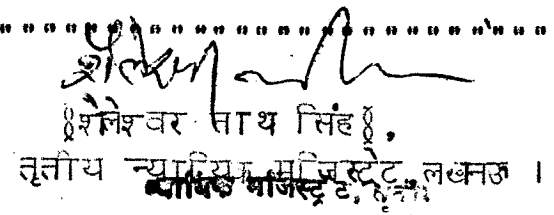 §शैलेश्वर नाथ सिंह§,
तृतीय न्यायिक मजिस्ट्रेट, लखनऊ ।
न्यायिक मजिस्ट्रेट,